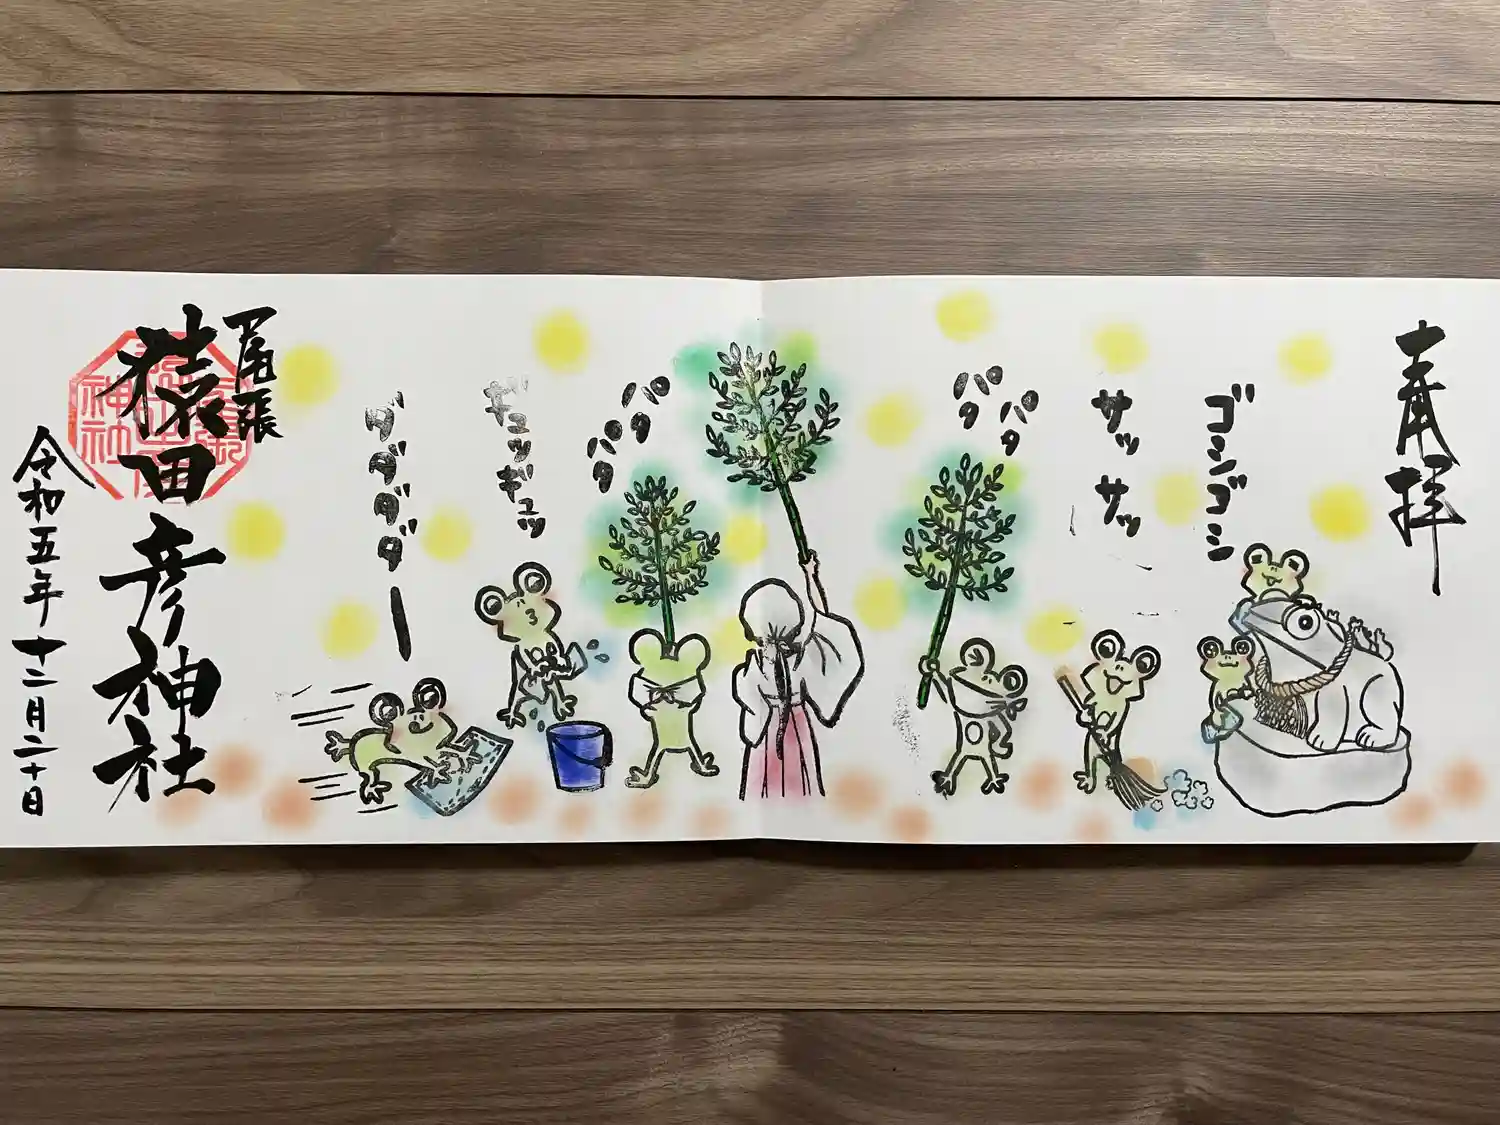 奉拝
ゴシゴシ
サッサッ
パタパタ
パタパタ
ギュッギュッ
ダダダダー
尾張
猿田彦神社
令和五年十二月二十日